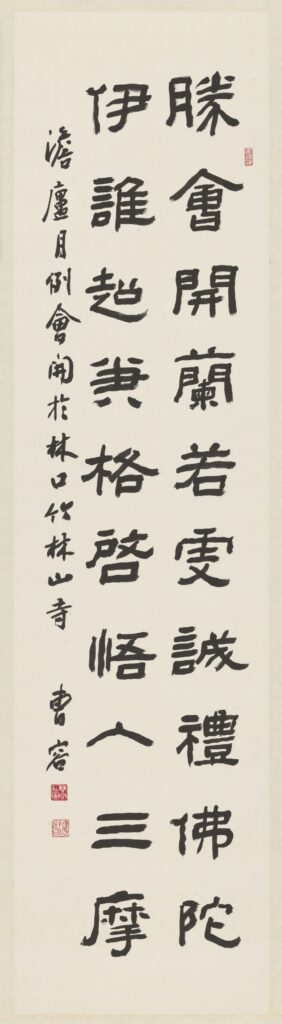 勝會開蘭若虔誠禮佛陀
伊誰超格啓悟入三摩
澹廬月例會開於林口竹林山寺 曹容